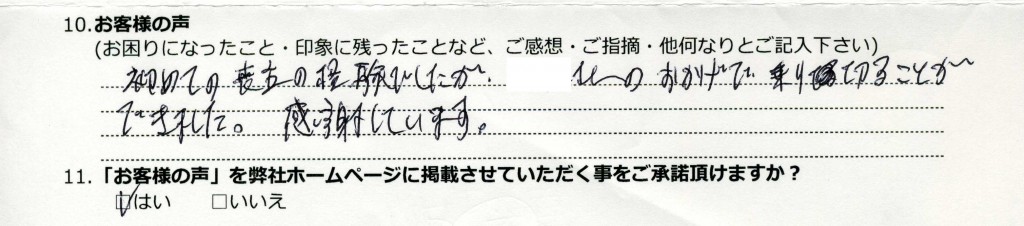 10.お客様の声
(お困りになったこと・印象に残ったことなど、ご感想・ご指摘・他何なりとご記入下さい)
初めての喪主の経験でしたが、 社へのおかげで乗り切ることが
できました。感謝しています。
11.「お客様の声」を弊社ホームページに掲載させていただく事をご承諾頂けますか？
☑はい □いいえ